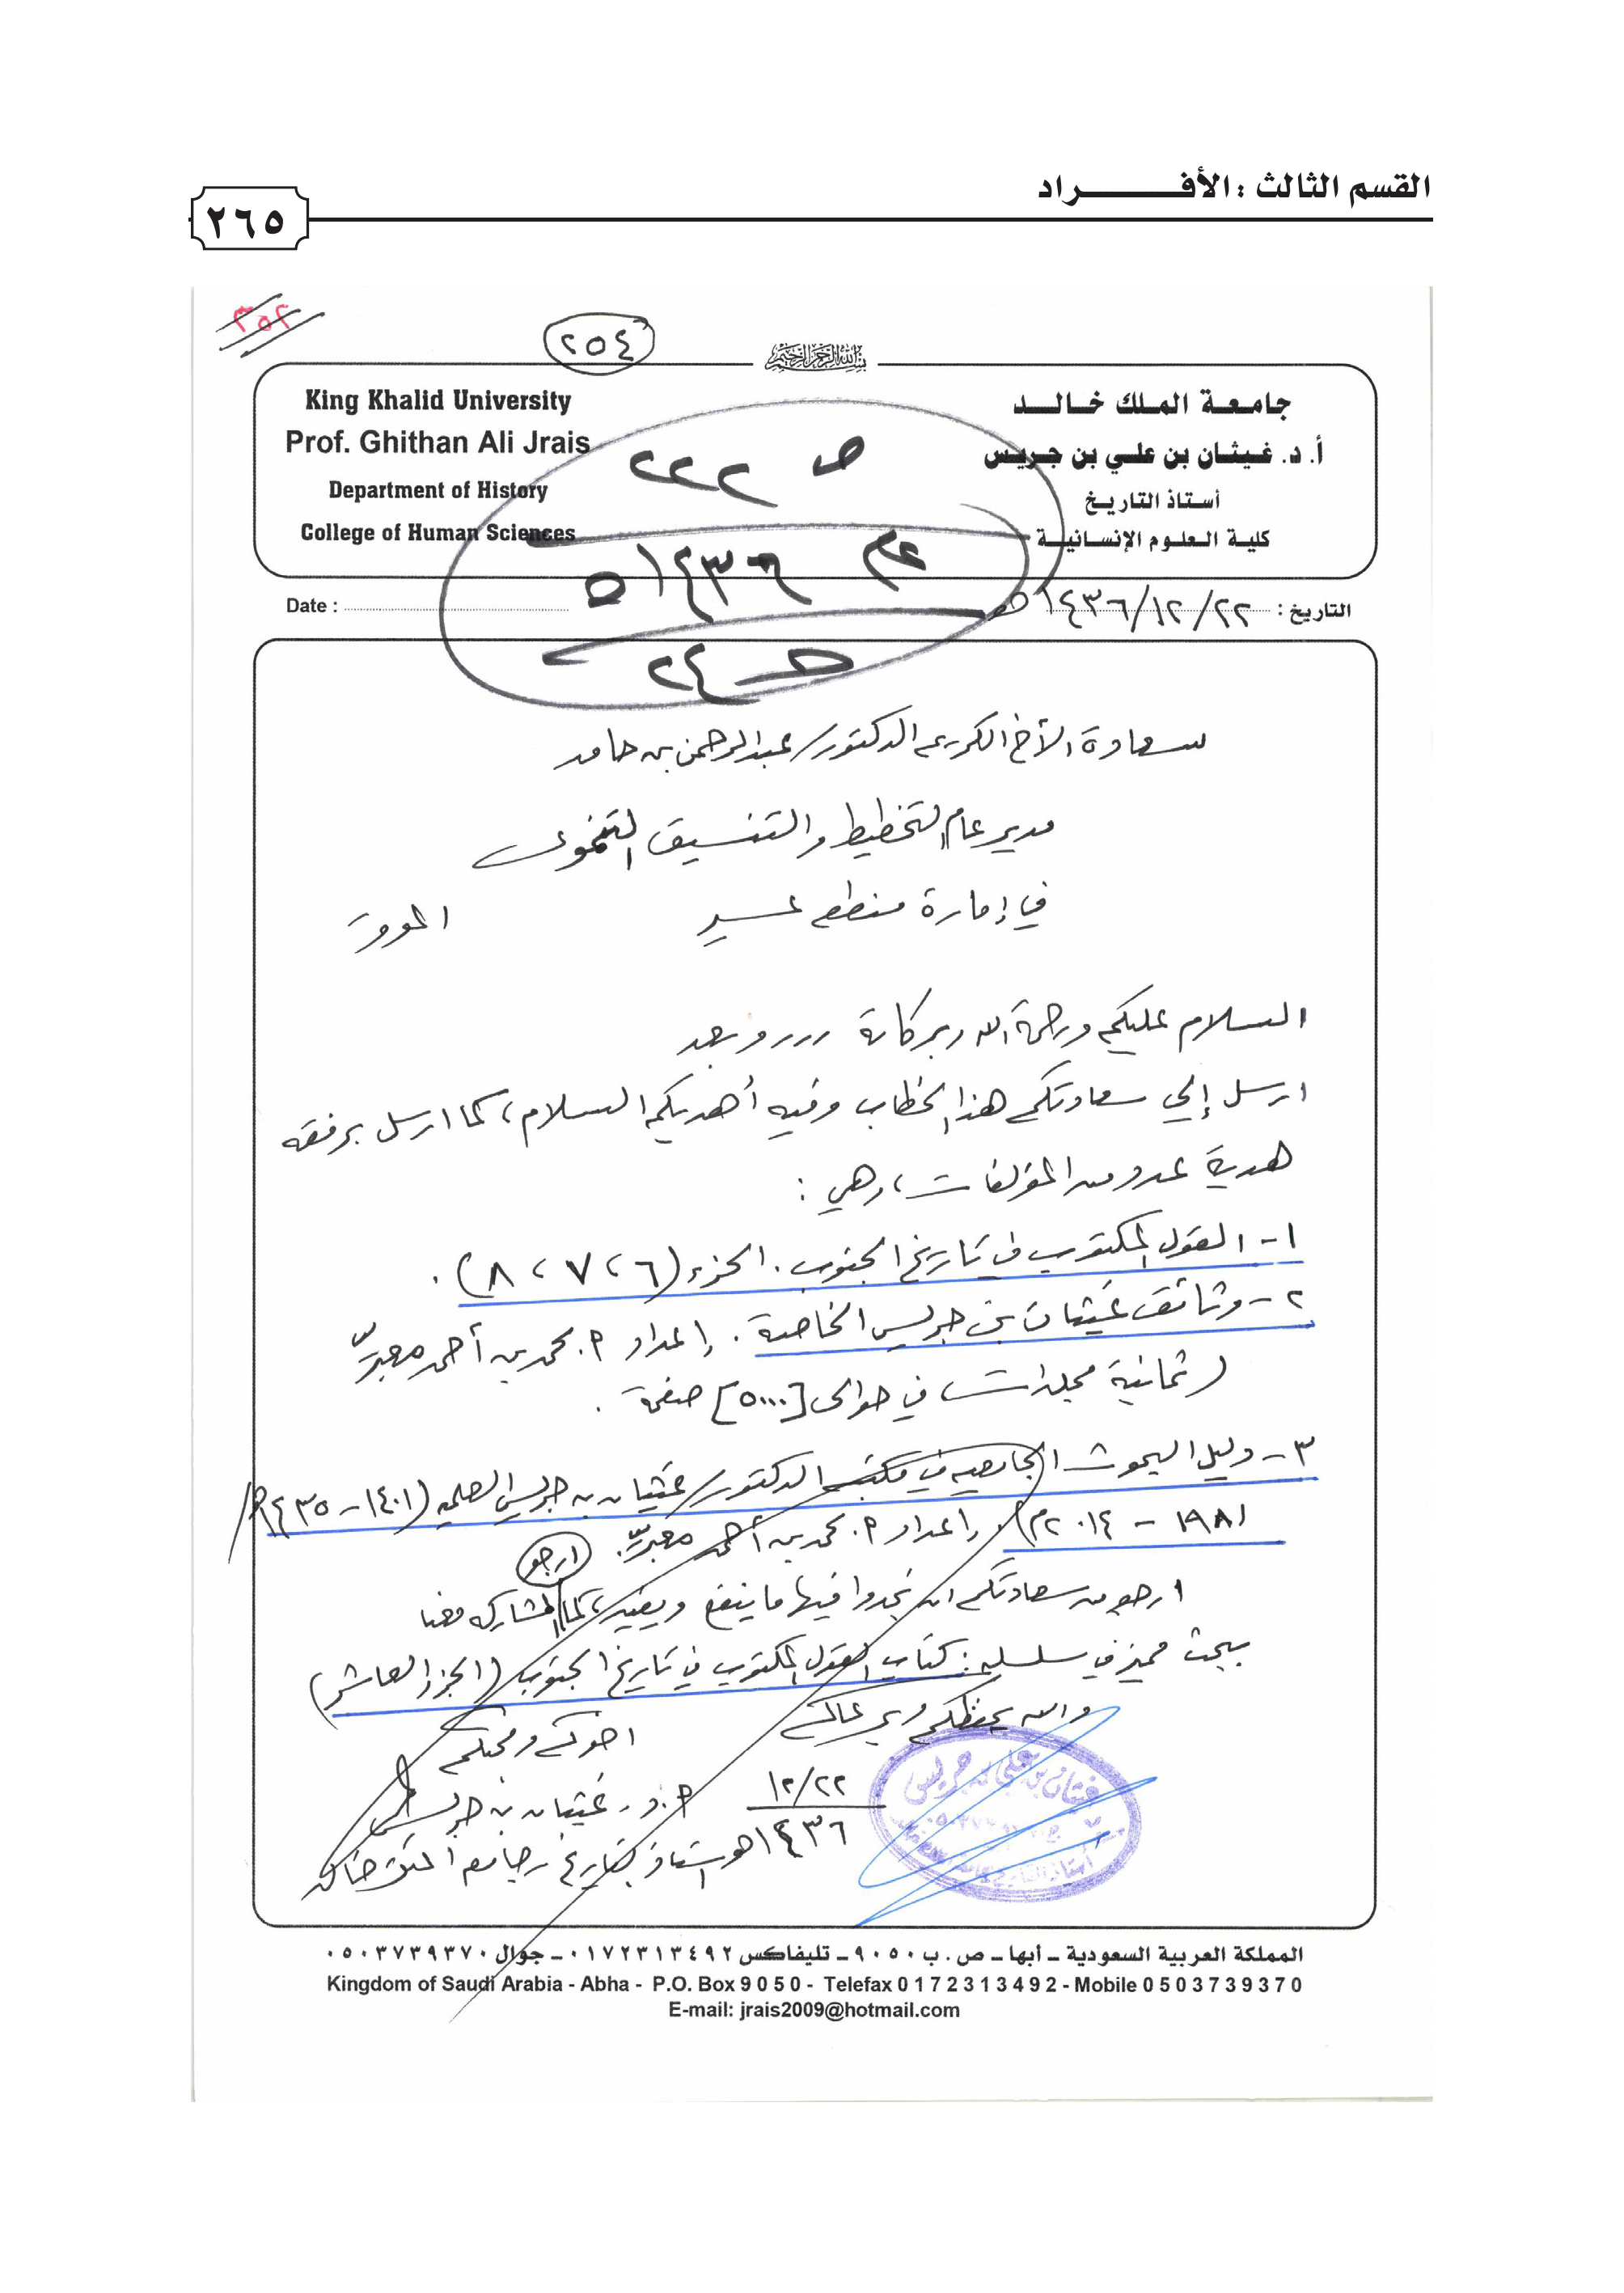 القسم الثالث : الأفـــراد
٢٦٥
٢٥٤
٢٥٤
بسم الله الرحمن الرحيم
جامعة الملك خالد
أ. د. غيثان بن علي بن جريس
أستاذ التاريخ
كلية العلوم الإنسانية
King Khalid University
Prof. Ghithan Ali Jrais
Department of History
College of Human Sciences
ص ٢٢٢
١٤٣٦ ه
التاريخ : ٢٢/١٢/١٤٣٦هـ
Date :
سعادة الأخ الكريم الدكتور/ عبدالرحمن بن حامد
مدير عام التخطيط والتنسيق التنموي
في إمارة منطقة عسير
الموقر
السلام عليكم ورحمة الله وبركاته ,,,, وبعد
ارسل إلى سعادتكم هذا الخطاب وفيه أهديكم السلام، كما ارسل برفقه
هدية عدد من المؤلفات، وهي :
١- القول المكتوب في تاريخ الجنوب. الجزء (٦، ٧، ٨).
٢- وثائق غيثان بن جريس الخاصة. إعداد م. محمد بن أحمد معبّر
(ثمانية مجلدات في حوالي [٥٠٠٠] صفحة.
٣- دليل البحوث الجامعية في مكتبة الدكتور/ غيثان بن جريس العلمية (١٤٠١-١٤٣٥هـ/
١٩٨١ - ٢٠١٤م). إعداد م. محمد بن أحمد معبّر.
ارجو
ارجو من سعادتكم ان تجدوا فيها ما ينفع ويفيد، كما المشاركة معنا
ببحث مميز في سلسلة: كتاب القول المكتوب في تاريخ الجنوب (الجزء العاشر)
والله يحفظكم ويرعاكم
اخوكم ومحبكم
أ.د. غيثان بن جريس
٢٢/١٢
١٤٣٦هـ
استاذ التاريخ بجامعة الملك خالد
المملكة العربية السعودية ــ أبها ــ ص . ب ٩٠٥٠ ــ تليفاكس ٠١٧٢٣١٣٤٩٢ ــ جوال ٠٥٠٣٧٣٩٣٧٠
Kingdom of Saudi Arabia - Abha - P.O. Box 9 0 5 0 - Telefax 0 1 7 2 3 1 3 4 9 2 - Mobile 0 5 0 3 7 3 9 3 7 0
E-mail: jrais2009@hotmail.com